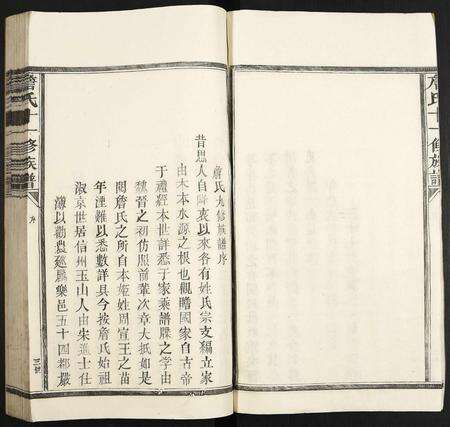 詹氏十一修族譜
詹氏九修族譜序
昔思人自降衷以來各有姓氏宗支編立家
由木本水源之根也觀贈國家自古帝
于禮經本世詳悉于家乘譜牒之學由
魏晉之初仿照前輩次章大抵如是
閱詹氏之所自本姬姓周宣王之苗
年湮難以悉數詳具今按詹氏始祖
淑京世居信州玉山人由宋進士仕
薄以勸農廵歷樂邑五十四都嚴
詹氏十一修族譜
序
三世